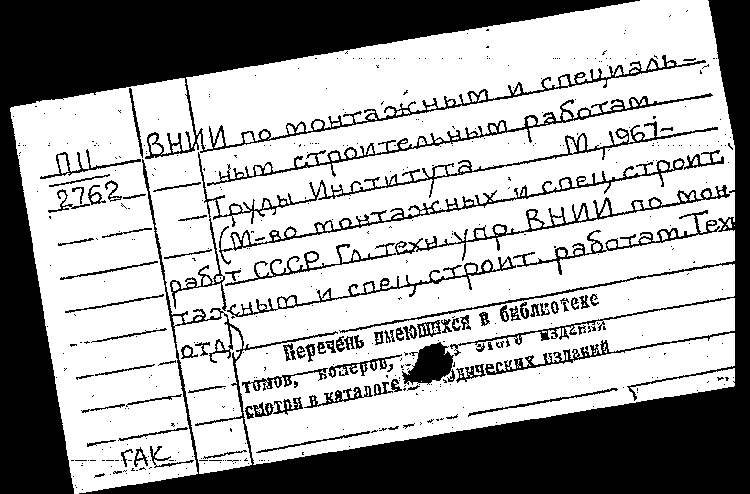 П11
2762
ВНИИ по монтажным и специаль=
ным строительным работам.
Труды Института. М., 1967-
(М-во монтажных и спец. строит.
работ СССР. Гл. техн. упр. ВНИИ по мон-
тажным и спец. строит. работам. Техн
отд.)
Перечень имеющихся в библиотеке
томов, номеров, этого издания
смотри в каталоге изданий
ГАК